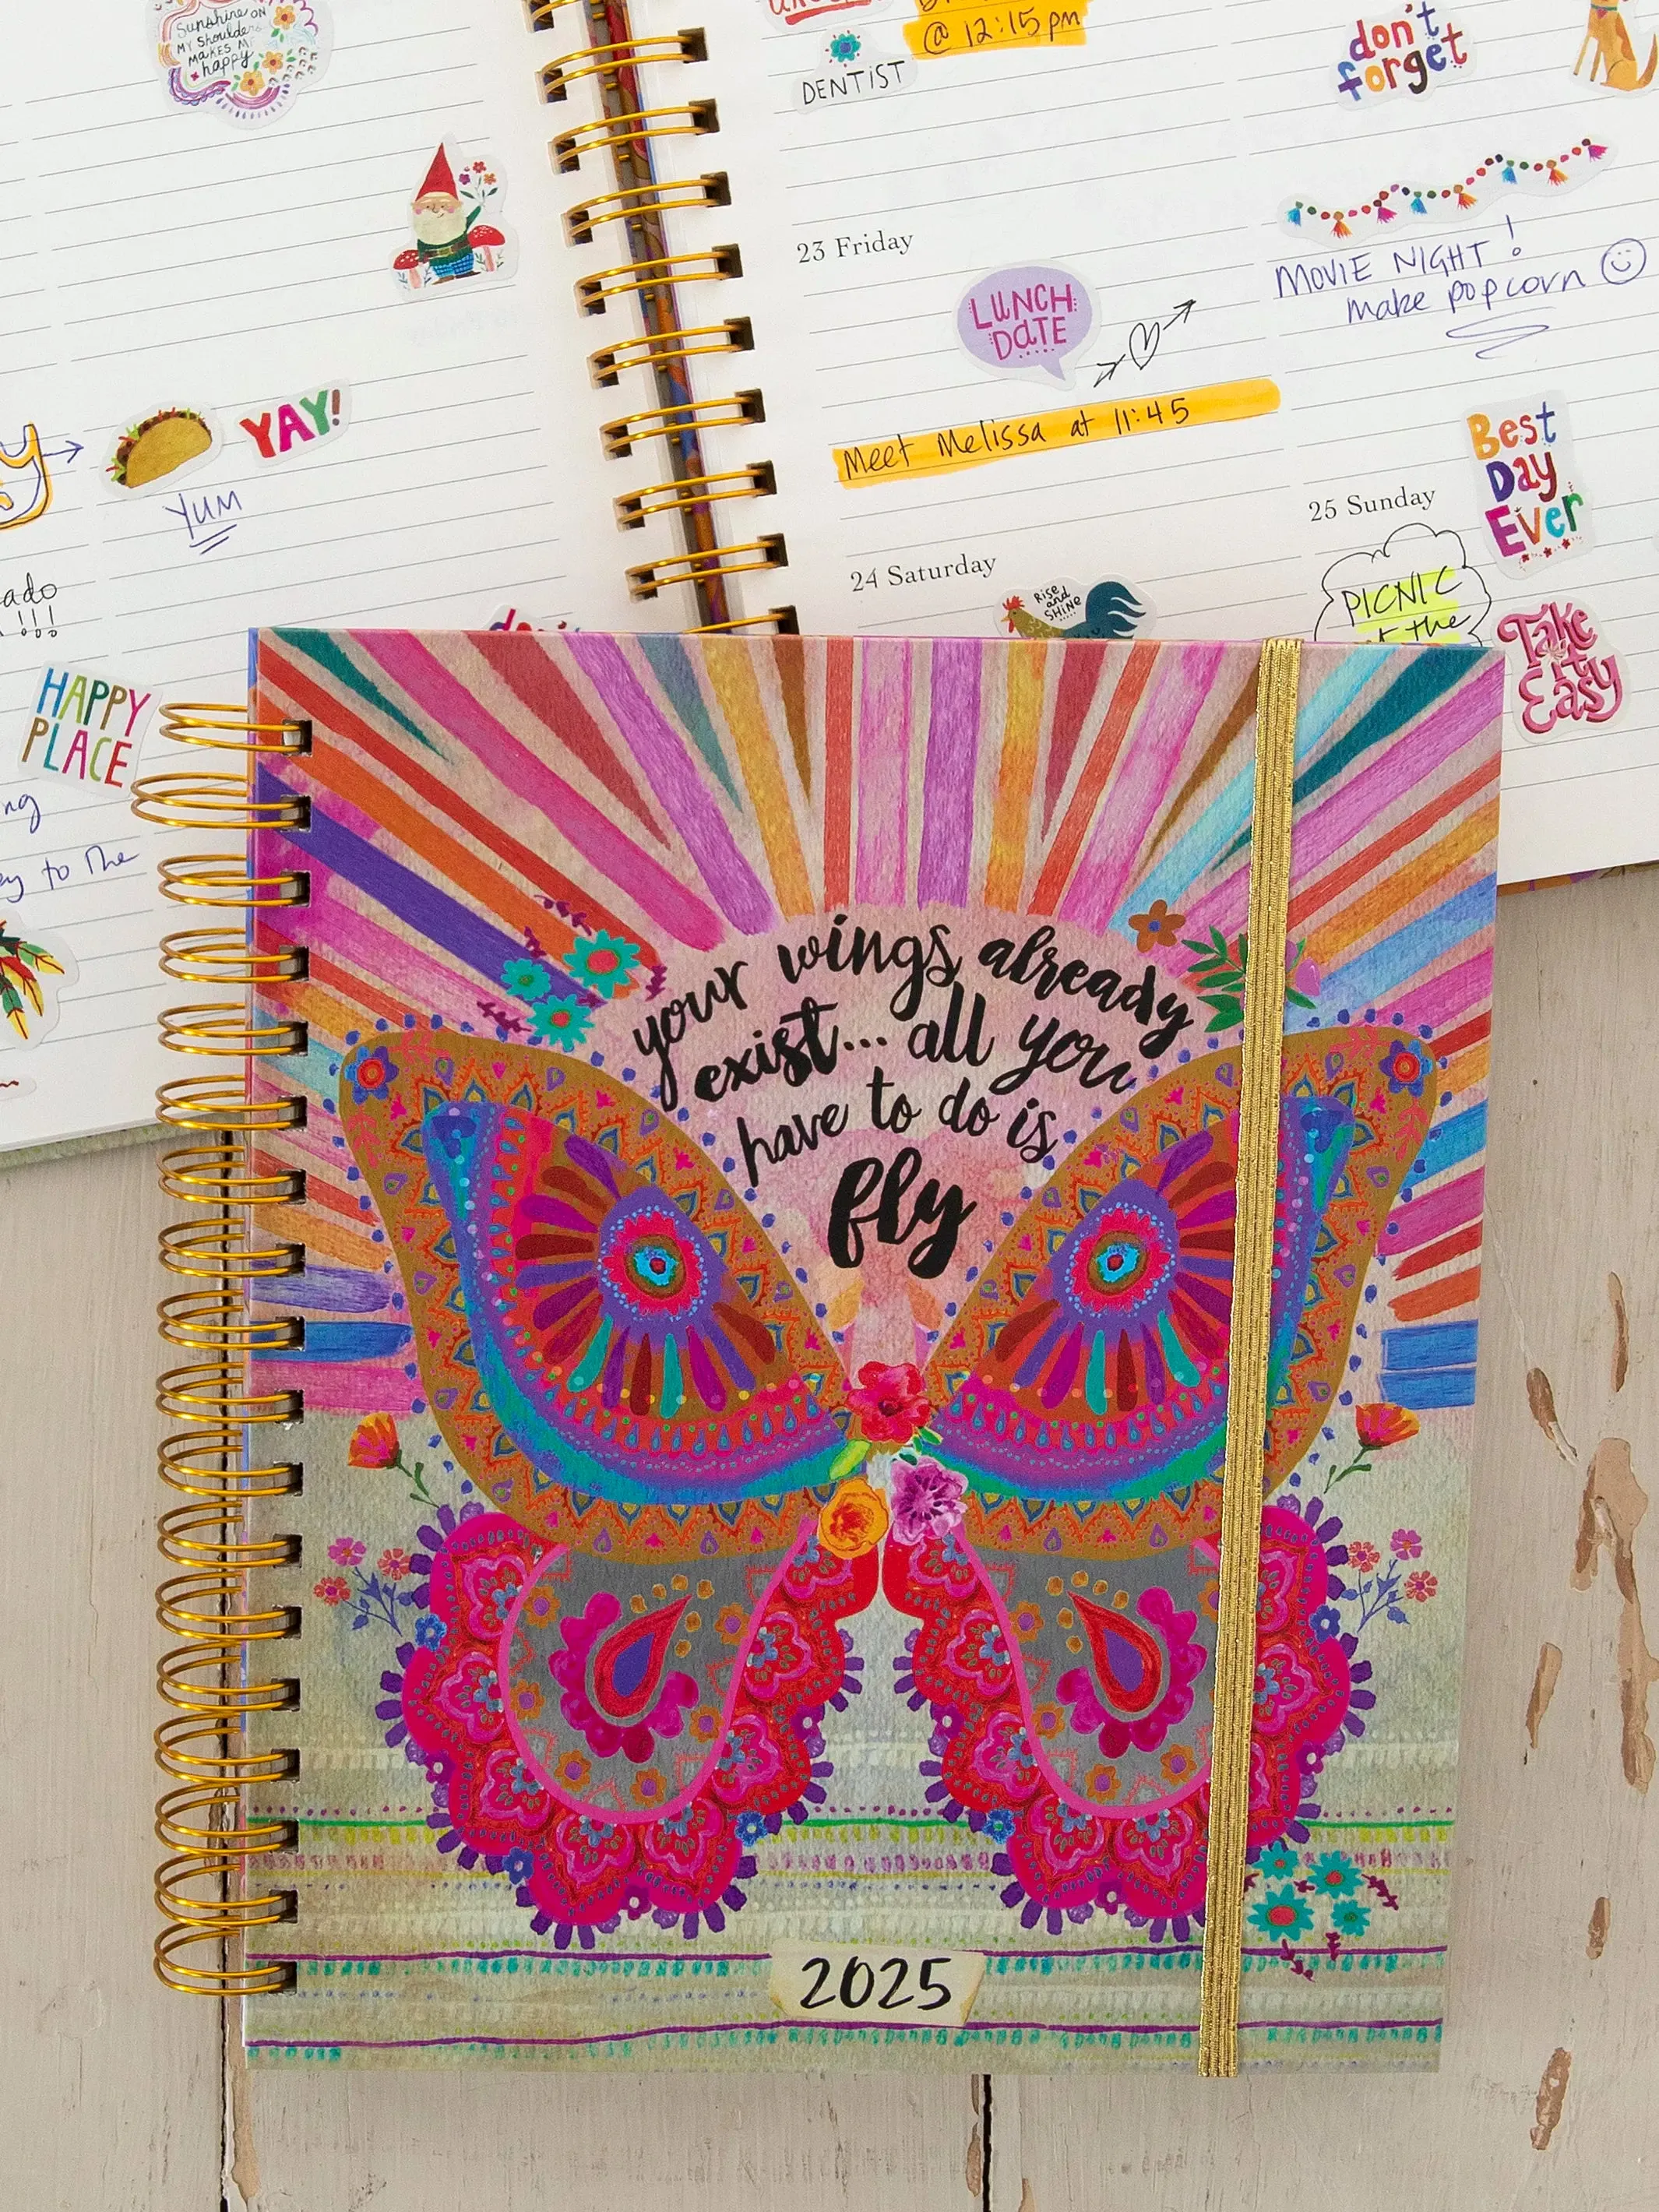 Sunshine ON
MY Shoulders
MAKES ME
happy
@ 12:15 pm
DENTIST
don't
forget
23 Friday
LUNCH
DATE
MOVIE NIGHT!
make popcorn
YAY!
YUM
Meet Melissa at 11:45
Best
Day
Ever
25 Sunday
24 Saturday
Rise
and
SHINE
PICNIC
the
Take
it
Easy
HAPPY
PLACE
to The
your wings already
exist... all you
have to do is
fly
2025